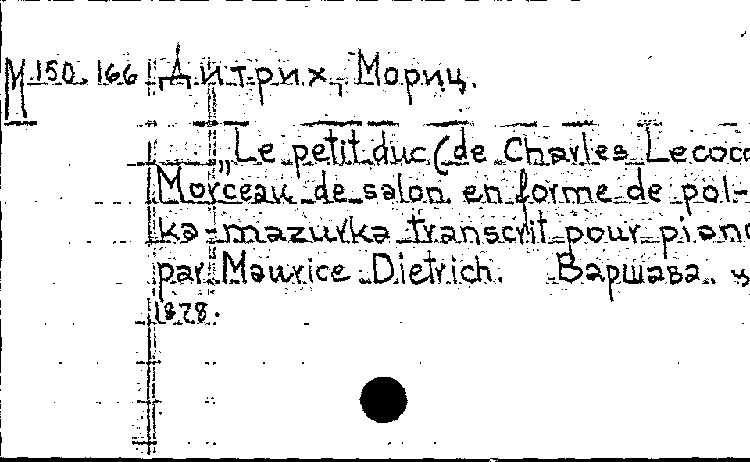 М 150.166 Дитрих, Мориц.
„Le petit duc (de Charles Lecocq
Morceau de salon en forme de pol-
ka-mazurka transcrit pour piano
par Maurice Dietrich. Варшава. ц
1878.